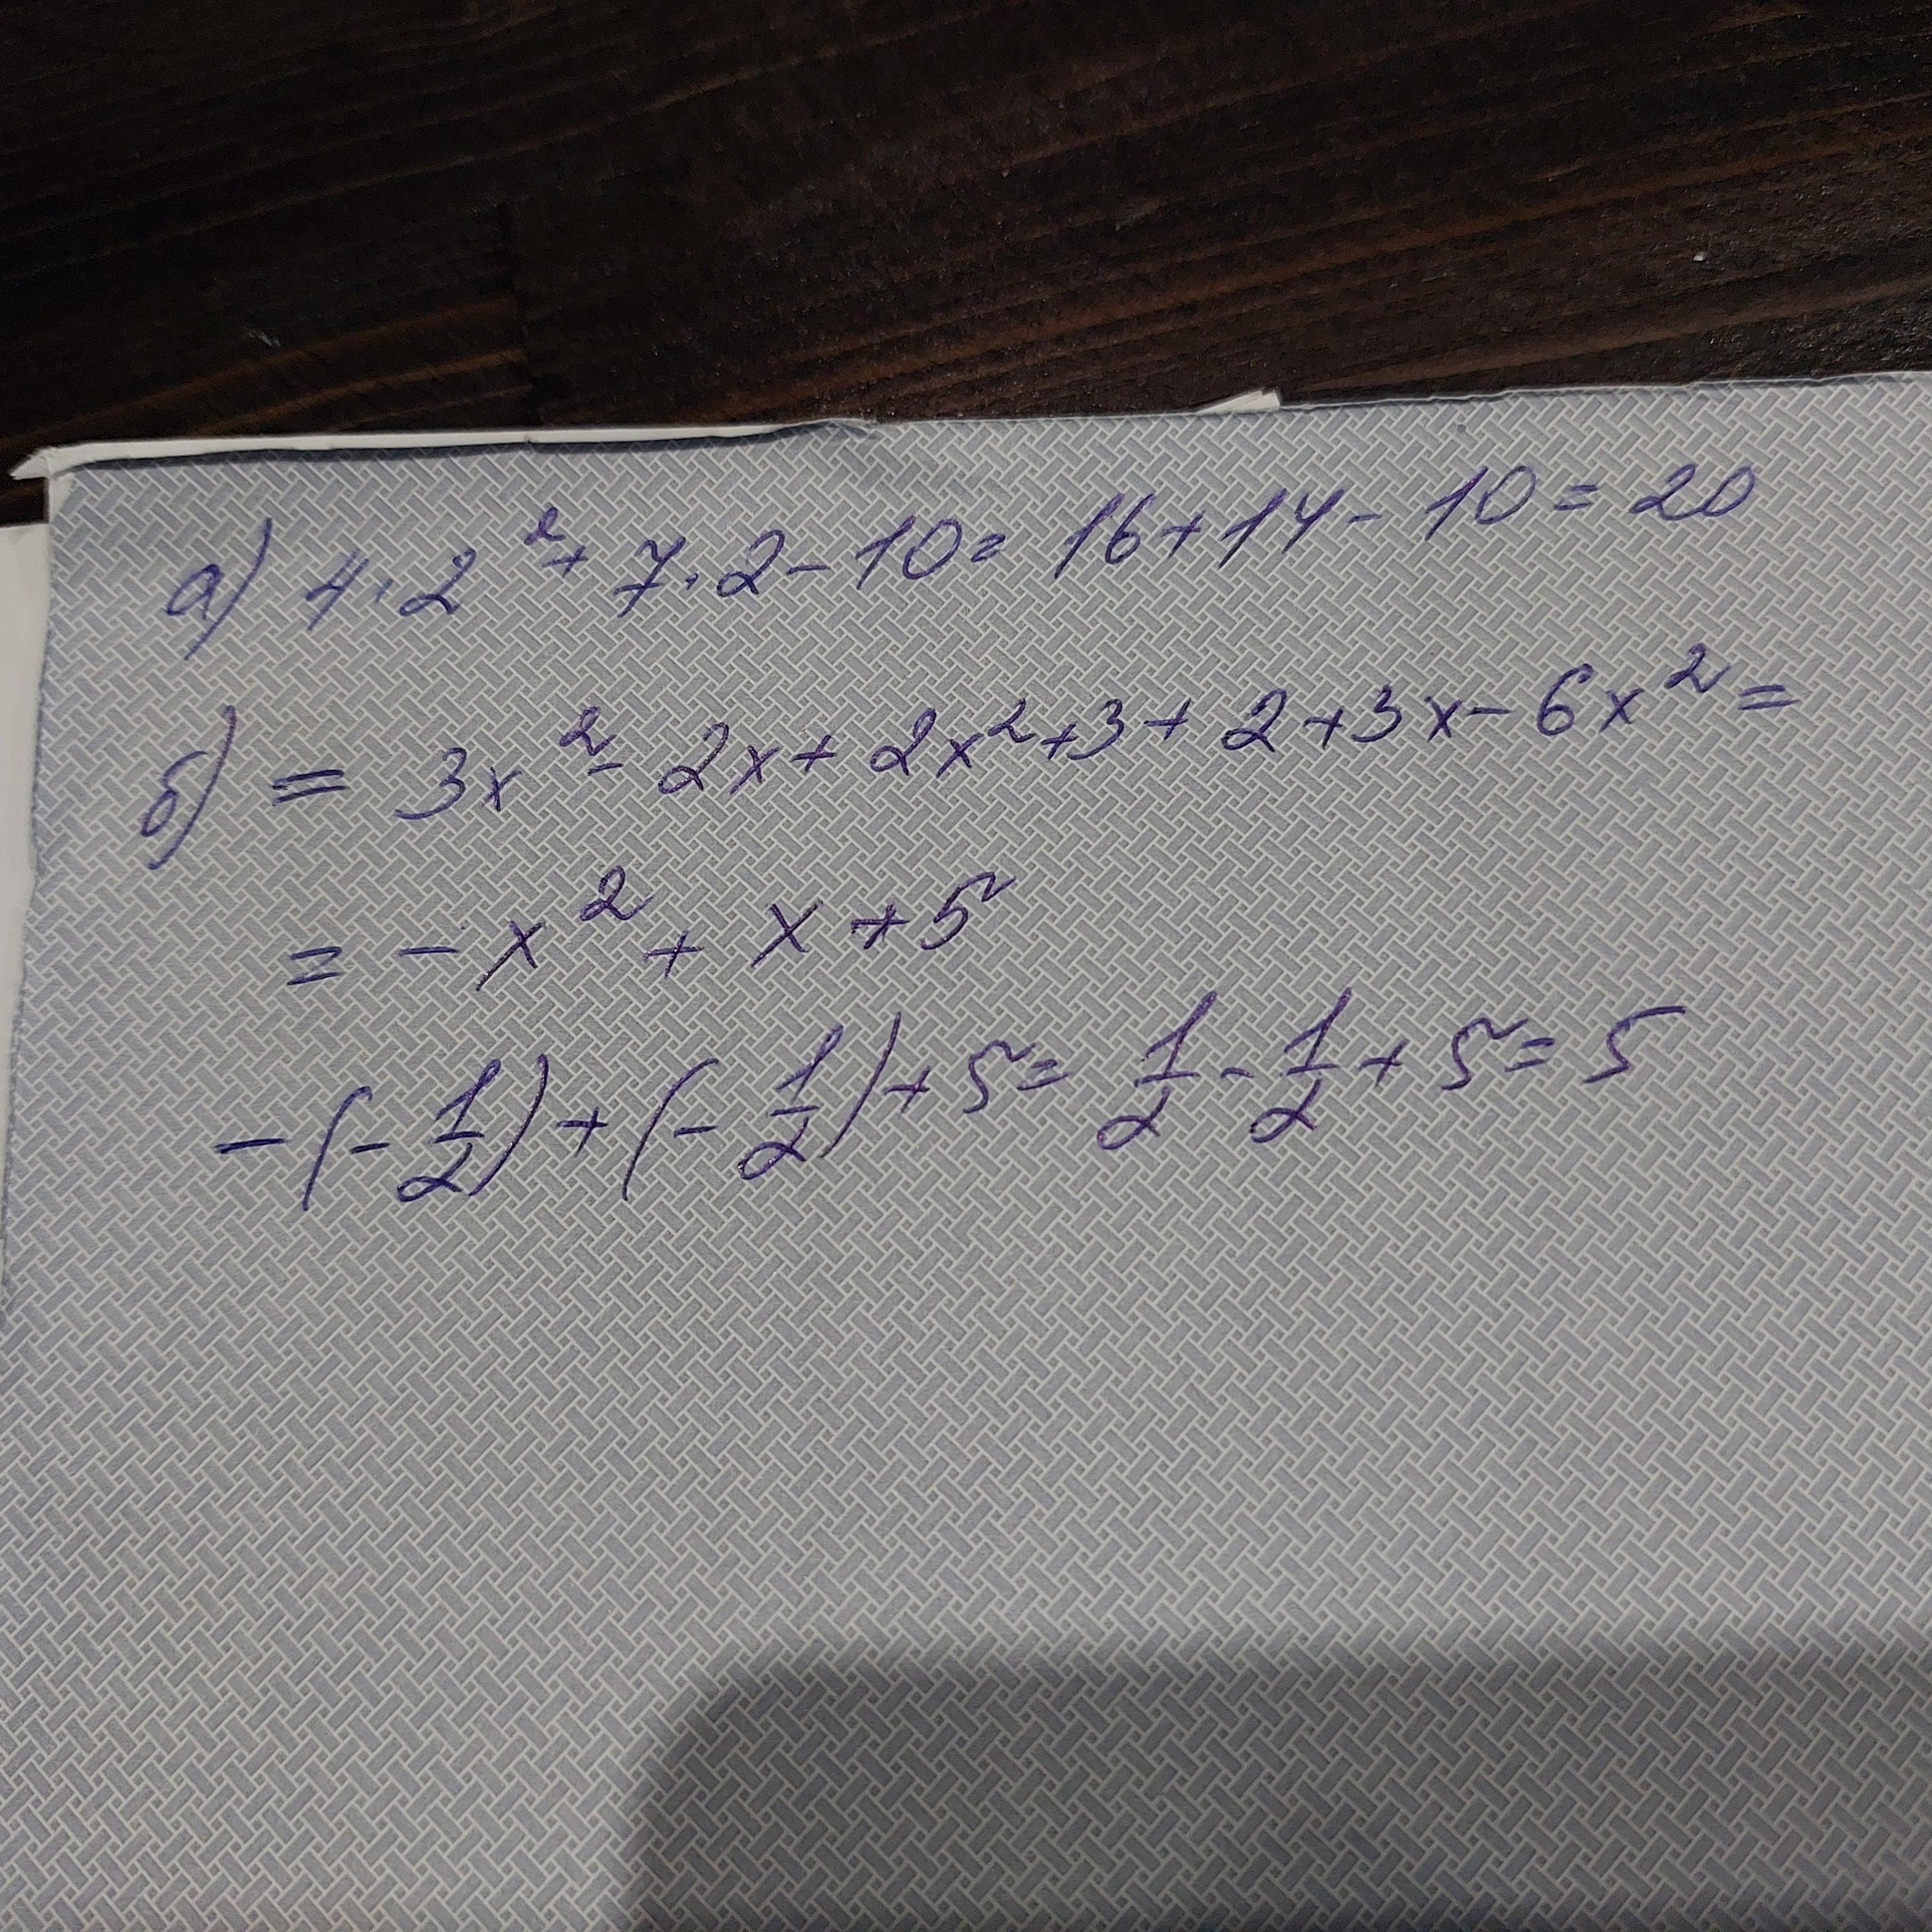 а) 4·2²+7·2-10=16+14-10=20
б) = 3x²-2x+2x²+3+2+3x-6x²=
= -x²+x+5
-(-1/2)+(-1/2)+5=1/2-1/2+5=5